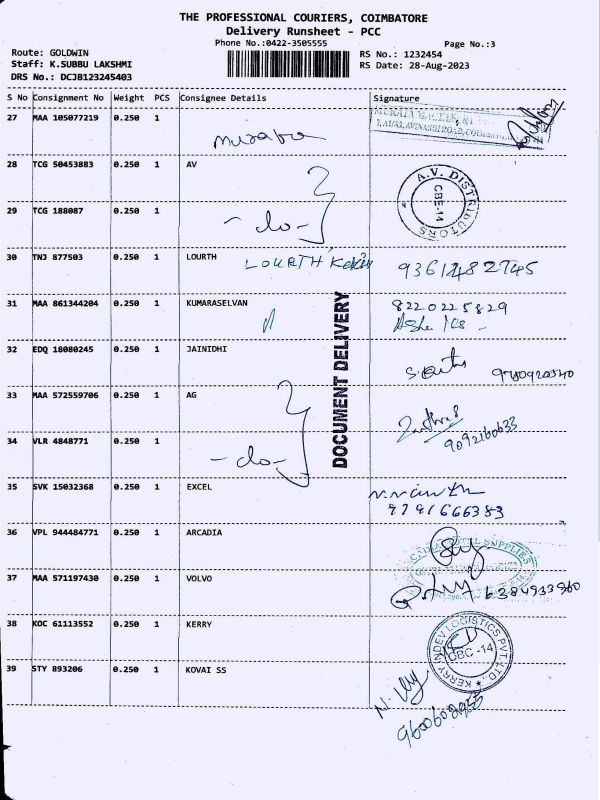 THE PROFESSIONAL COURIERS, COIMBATORE
Delivery Runsheet - PCC
Phone No.:0422-3505555
Page No.:3
Route: GOLDWIN
RS No.: 1232454
Staff: K.SUBBU LAKSHMI
RS Date: 28-Aug-2023
DRS No.: DCJB123245403
S No Consignment No Weight PCS Consignee Details Signature
27 MAA 105077219 0.250 1
28 TCG 50453883 0.250 1 AV
A.V. DISTRIBUTORS
CBE-14
29 TCG 188087 0.250 1
- do -
30 TNJ 877503 0.250 1 LOURTH
LOURTH 9361482745
31 MAA 861344204 0.250 1 KUMARASELVAN
8220225829
DOCUMENT DELIVERY
32 EDQ 18080245 0.250 1 JAINIDHI
33 MAA 572559706 0.250 1 AG
9092160633
34 VLR 4848771 0.250 1
- do -
35 SVK 15032368 0.250 1 EXCEL
9791666383
36 VPL 944484771 0.250 1 ARCADIA
37 MAA 571197430 0.250 1 VOLVO
6384933960
38 KOC 61113552 0.250 1 KERRY
KERRY INDEV LOGISTICS PVT. LTD.,
CBC-14
39 STY 893206 0.250 1 KOVAI SS